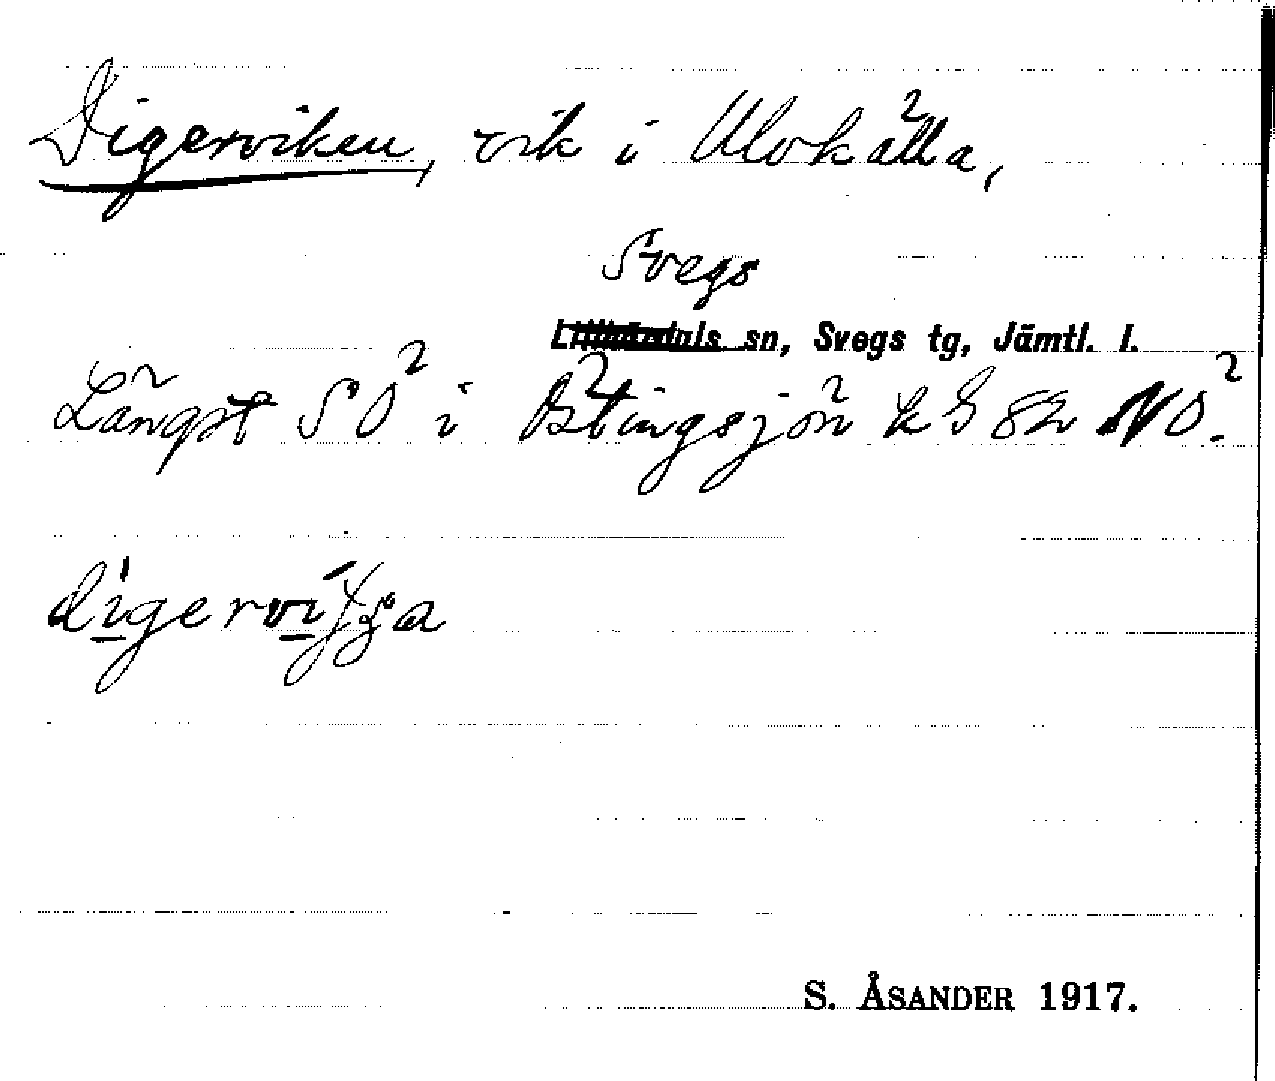 Digerviken, vik i Ulvkälla,
Svegs
Lillhärdals sn, Svegs tg, Jämtl. l.
Längst SÖ i Östingsjön k G 82 NÖ.
digerviʃʃa
S. ÅSANDER 1917.